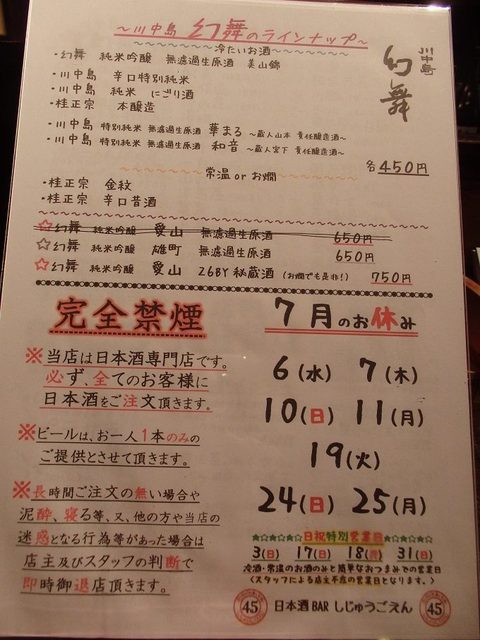 ～川中島 幻舞のラインナップ～
冷たいお酒
・幻舞 純米吟醸 無濾過生原酒 美山錦
・川中島 辛口特別純米
・川中島 純米 にごり酒
・桂正宗 本醸造
・川中島 特別純米 無濾過生原酒 華まる ～蔵人山本 責任醸造酒～
・川中島 特別純米 無濾過生原酒 和音 ～蔵人宮下 責任醸造酒～
川中島
幻舞
各450円
常温 or お燗
・桂正宗 金紋
・桂正宗 辛口昔酒
☆幻舞 純米吟醸 愛山 無濾過生原酒 650円
☆幻舞 純米吟醸 雄町 無濾過生原酒 650円
☆幻舞 純米吟醸 愛山 26BY 秘蔵酒 (お燗でも是非!) 750円
完全禁煙
※当店は日本酒専門店です。
必ず、全てのお客様に
日本酒をご注文頂きます。
※ビールは、お一人1本のみの
ご提供とさせて頂きます。
※長時間ご注文の無い場合や
泥酔、寝る等、又、他の方や当店の
迷惑となる行為等があった場合は
店主及びスタッフの判断で
即時御退店頂きます。
7月のお休み
6(水) 7(木)
10(日) 11(月)
19(火)
24(日) 25(月)
★☆★☆★☆日祝特別営業日★☆★☆★☆
3(日) 17(日) 18(月) 31(日)
冷酒・常温のお酒のみと簡単なおつまみでの営業日
(スタッフによる店主不在の営業日となります。)
45 日本酒BAR しじゅうごえん 45